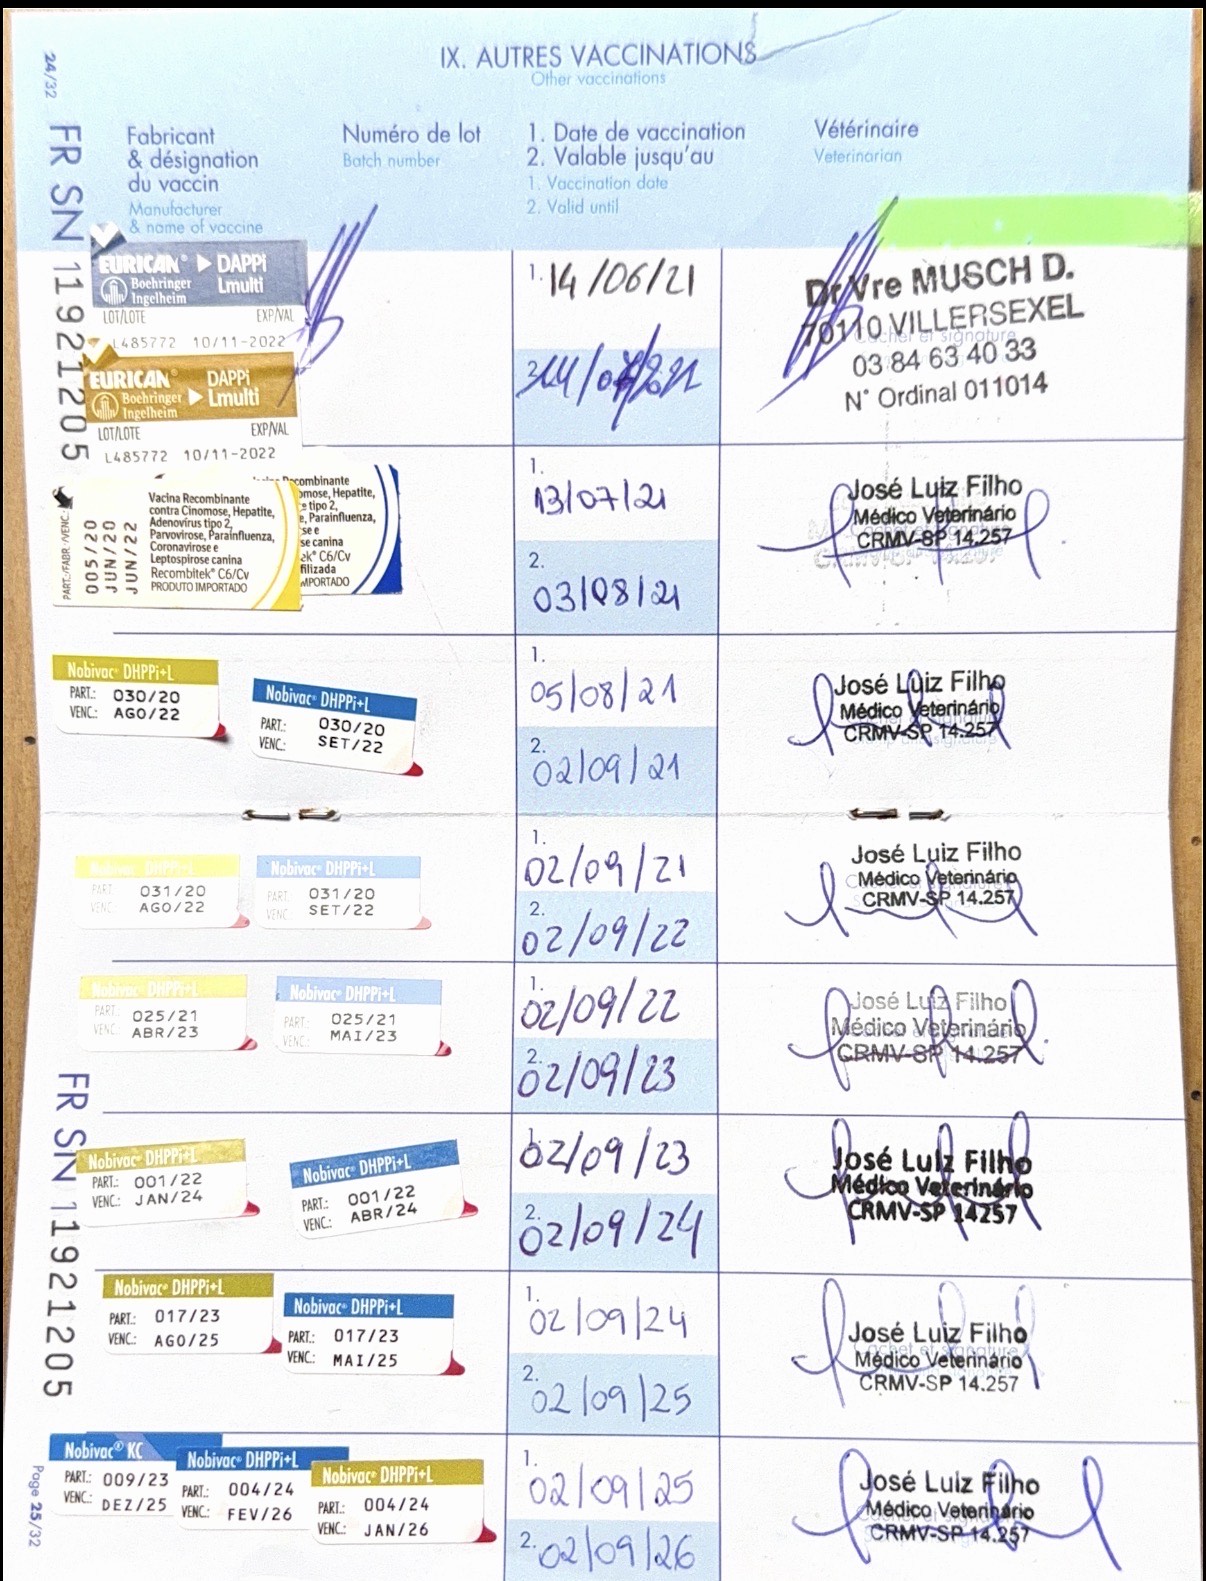 24/32
IX. AUTRES VACCINATIONS
Other vaccinations
FR SN 11921205
Fabricant
& désignation
du vaccin
Manufacturer
& name of vaccine
Numéro de lot
Batch number
1. Date de vaccination
2. Valable jusqu'au
1. Vaccination date
2. Valid until
Vétérinaire
Veterinarian
EURICAN® DAPPi
Boehringer Lmulti
Ingelheim
LOT/LOTE EXP/VAL
L485772 10/11-2022
EURICAN® DAPPi
Boehringer Lmulti
Ingelheim
LOT/LOTE EXP/VAL
L485772 10/11-2022
1. 14/06/21
2.
Dr Vre MUSCH D.
70110 VILLERSEXEL
Cachet et signature
03 84 63 40 33
N° Ordinal 011014
PART./FABR./VENC.:
005/20
JUN/20
JUN/22
Vacina Recombinante
contra Cinomose, Hepatite,
Adenovírus tipo 2,
Parvovirose, Parainfluenza,
Coronavirose e
Leptospirose canina
Recombitek® C6/Cv
PRODUTO IMPORTADO
Recombinante
omose, Hepatite,
e tipo 2,
e, Parainfluenza,
se e
se canina
ek® C6/Cv
filizada
MPORTADO
1.
13/07/21
2.
03/08/21
José Luiz Filho
Médico Veterinário
CRMV-SP 14.257
Nobivac® DHPPi+L
PART.: 030/20
VENC.: AGO/22
Nobivac® DHPPi+L
PART.: 030/20
VENC.: SET/22
1.
05/08/21
2.
02/09/21
José Luiz Filho
Médico Veterinário
CRMV-SP 14.257
Nobivac® DHPPi+L
PART. 031/20
VENC. AGO/22
Nobivac® DHPPi+L
PART. 031/20
VENC. SET/22
1.
02/09/21
2.
02/09/22
José Luiz Filho
Médico Veterinário
CRMV-SP 14.257
Nobivac® DHPPi+L
PART. 025/21
VENC. ABR/23
Nobivac® DHPPi+L
PART.: 025/21
VENC.: MAI/23
1.
02/09/22
2.
02/09/23
José Luiz Filho
Médico Veterinário
CRMV-SP 14.257
FR SN 11921205
Nobivac® DHPPi+L
PART.: 001/22
VENC.: JAN/24
Nobivac® DHPPi+L
PART.: 001/22
VENC.: ABR/24
1.
02/09/23
2.
02/09/24
José Luiz Filho
Médico Veterinário
CRMV-SP 14257
Nobivac® DHPPi+L
PART.: 017/23
VENC.: AGO/25
Nobivac® DHPPi+L
PART.: 017/23
VENC.: MAI/25
1.
02/09/24
2.
02/09/25
Cachet et signature
José Luiz Filho
Médico Veterinário
CRMV-SP 14.257
Nobivac® KC
PART.: 009/23
VENC.: DEZ/25
Nobivac® DHPPi+L
PART.: 004/24
VENC.: FEV/26
Nobivac® DHPPi+L
PART.: 004/24
VENC.: JAN/26
1.
02/09/25
2.
02/09/26
José Luiz Filho
Médico Veterinário
CRMV-SP 14.257
Page 25/32